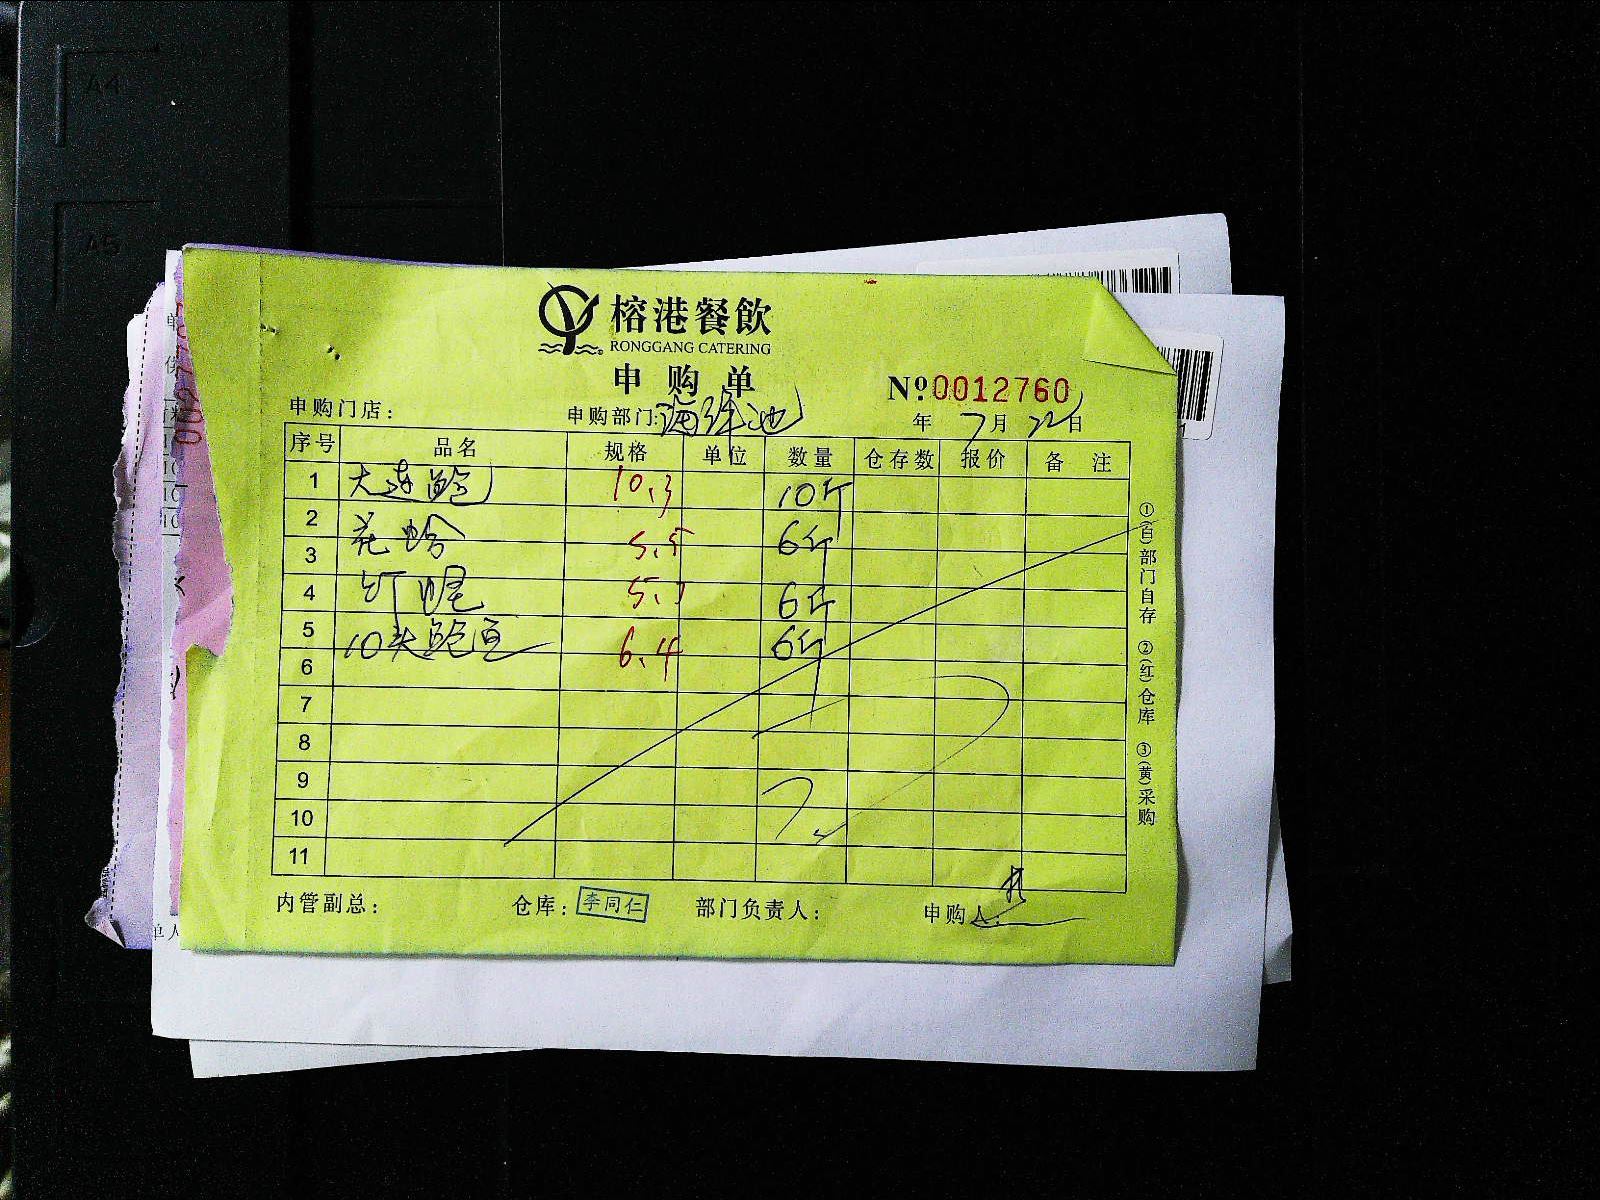 A4
A5
榕港餐飲
RONGGANG CATERING
申购单
№0012760
申购门店：
申购部门：海鲜池
年 7月22日
序号 品名 规格 单位 数量 仓存数 报价 备 注
1 大连鲍 10.3 10斤
2 花蛤 5.5 6斤
3
4 6斤
5 10头鲍鱼 6.4 6斤
6
7
8
9
10
11
①(白)部门自存 ②(红)仓库 ③(黄)采购
内管副总： 仓库：李同仁 部门负责人： 申购人：